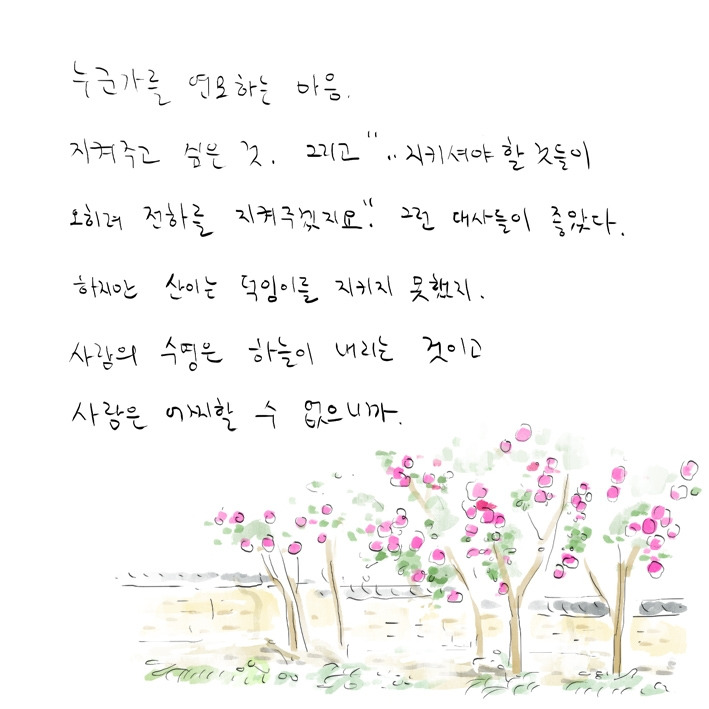 누군가를 연모하는 마음.
지켜주고 싶은 것. 그리고 "..지키셔야 할 것들이
오히려 전하를 지켜주겠지요". 그런 대사들이 좋았다.
하지만 산이는 덕임이를 지키지 못했지.
사람의 수명은 하늘이 내리는 것이고
사람은 어찌할 수 없으니까.